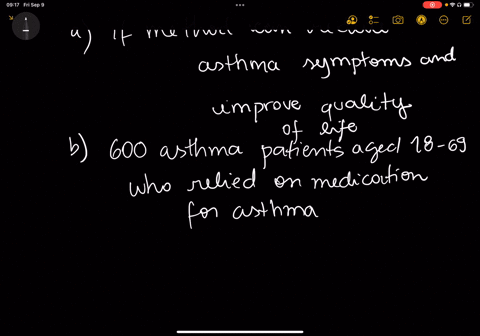 09:17 Fri Sep 9
a) if method can reduce
asthma symptoms and
improve quality
of life
b) 600 asthma patients aged 18-69
who relied on medication
for asthma